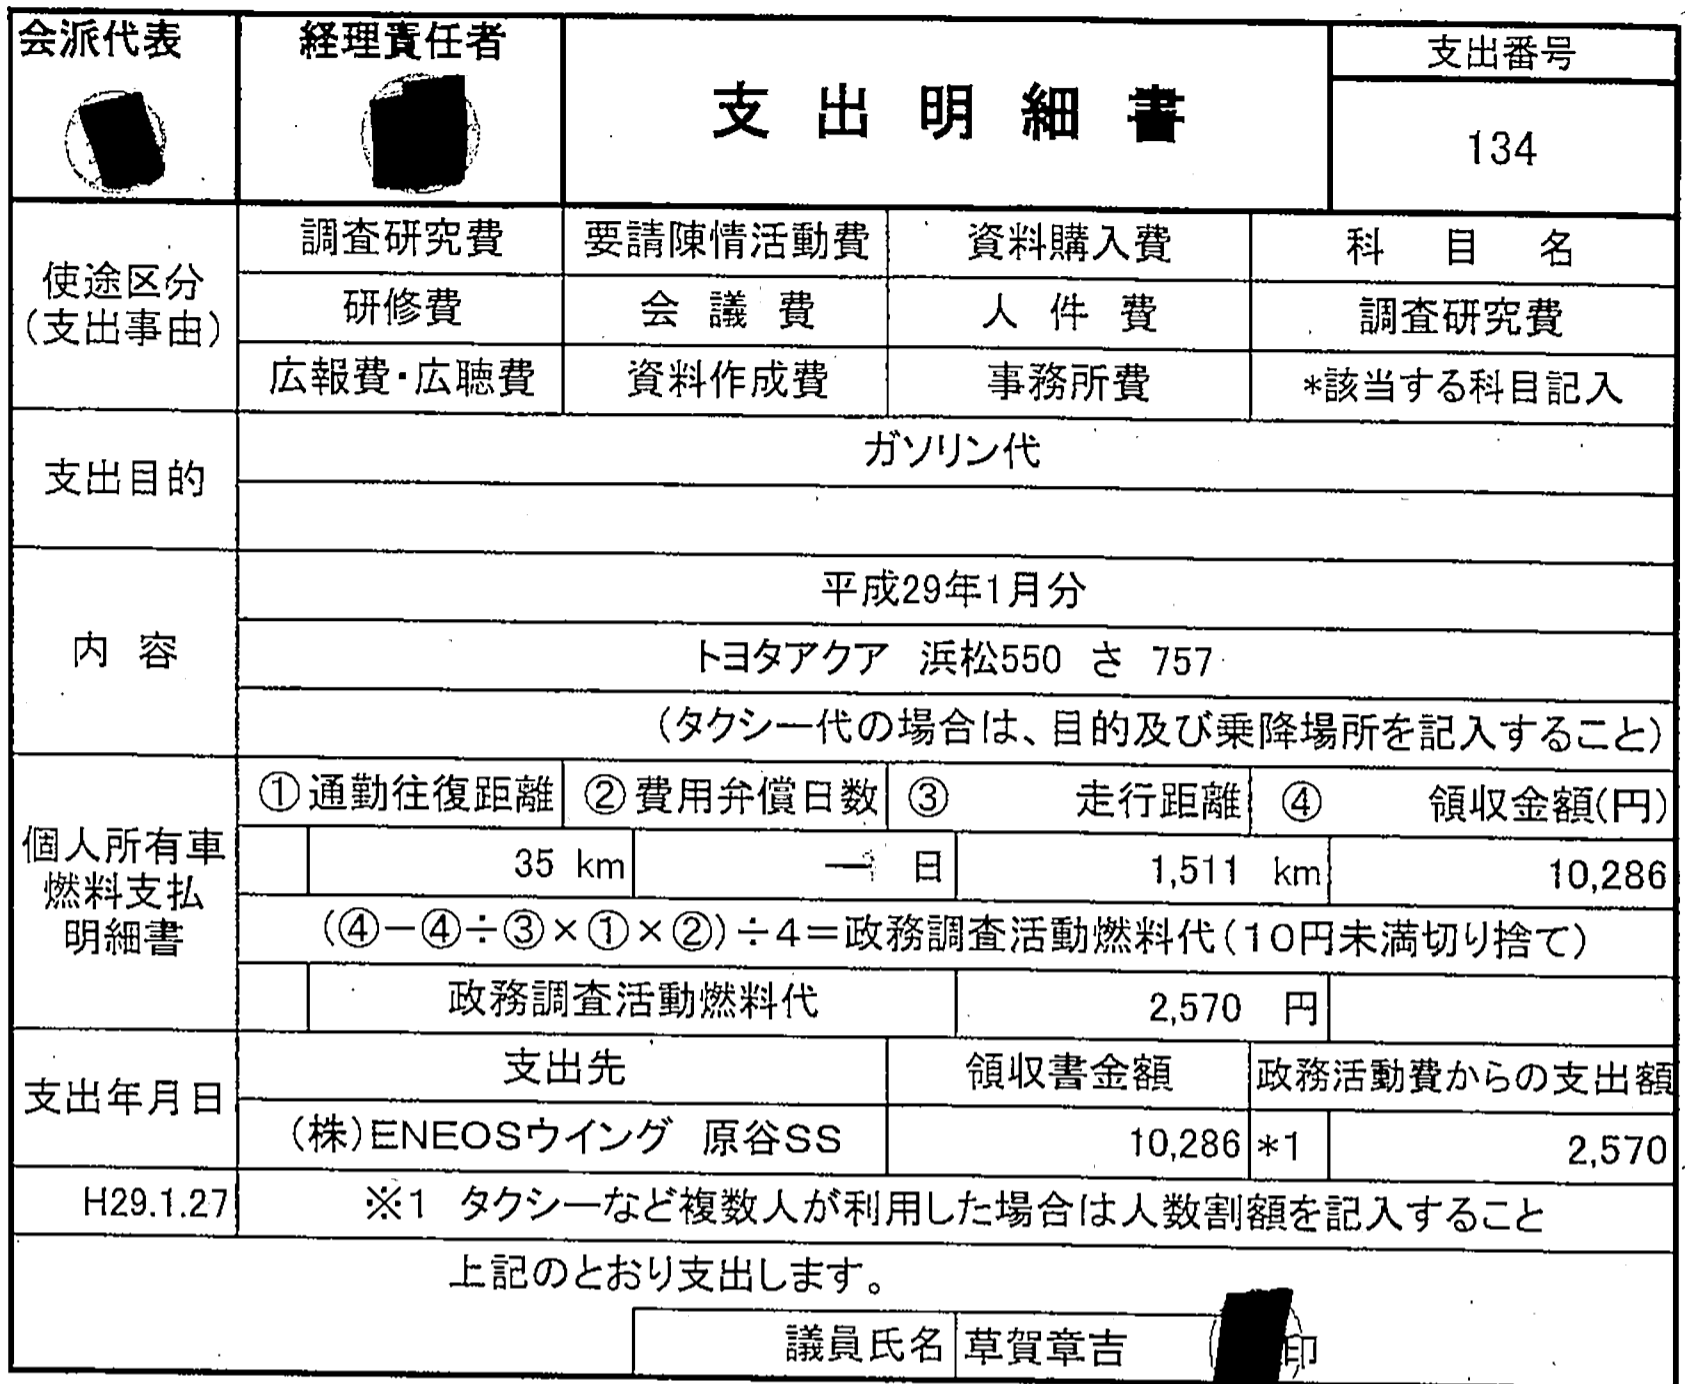 会派代表 経理責任者 支出明細書 支出番号
134
使途区分
(支出事由)
調査研究費 要請陳情活動費 資料購入費 科目名
研修費 会議費 人件費 調査研究費
広報費・広聴費 資料作成費 事務所費 *該当する科目記入
支出目的
ガソリン代
内容
平成29年1月分
トヨタアクア 浜松550 さ 757
(タクシー代の場合は、目的及び乗降場所を記入すること)
個人所有車
燃料支払
明細書
①通勤往復距離 ②費用弁償日数 ③ 走行距離 ④ 領収金額(円)
35 km 日 1,511 km 10,286
(④-④÷③×①×②)÷4=政務調査活動燃料代(10円未満切り捨て)
政務調査活動燃料代 2,570 円
支出年月日 支出先 領収書金額 政務活動費からの支出額
(株)ENEOSウイング 原谷SS 10,286 *1 2,570
H29.1.27 ※1 タクシーなど複数人が利用した場合は人数割額を記入すること
上記のとおり支出します。
議員氏名 草賀章吉 印